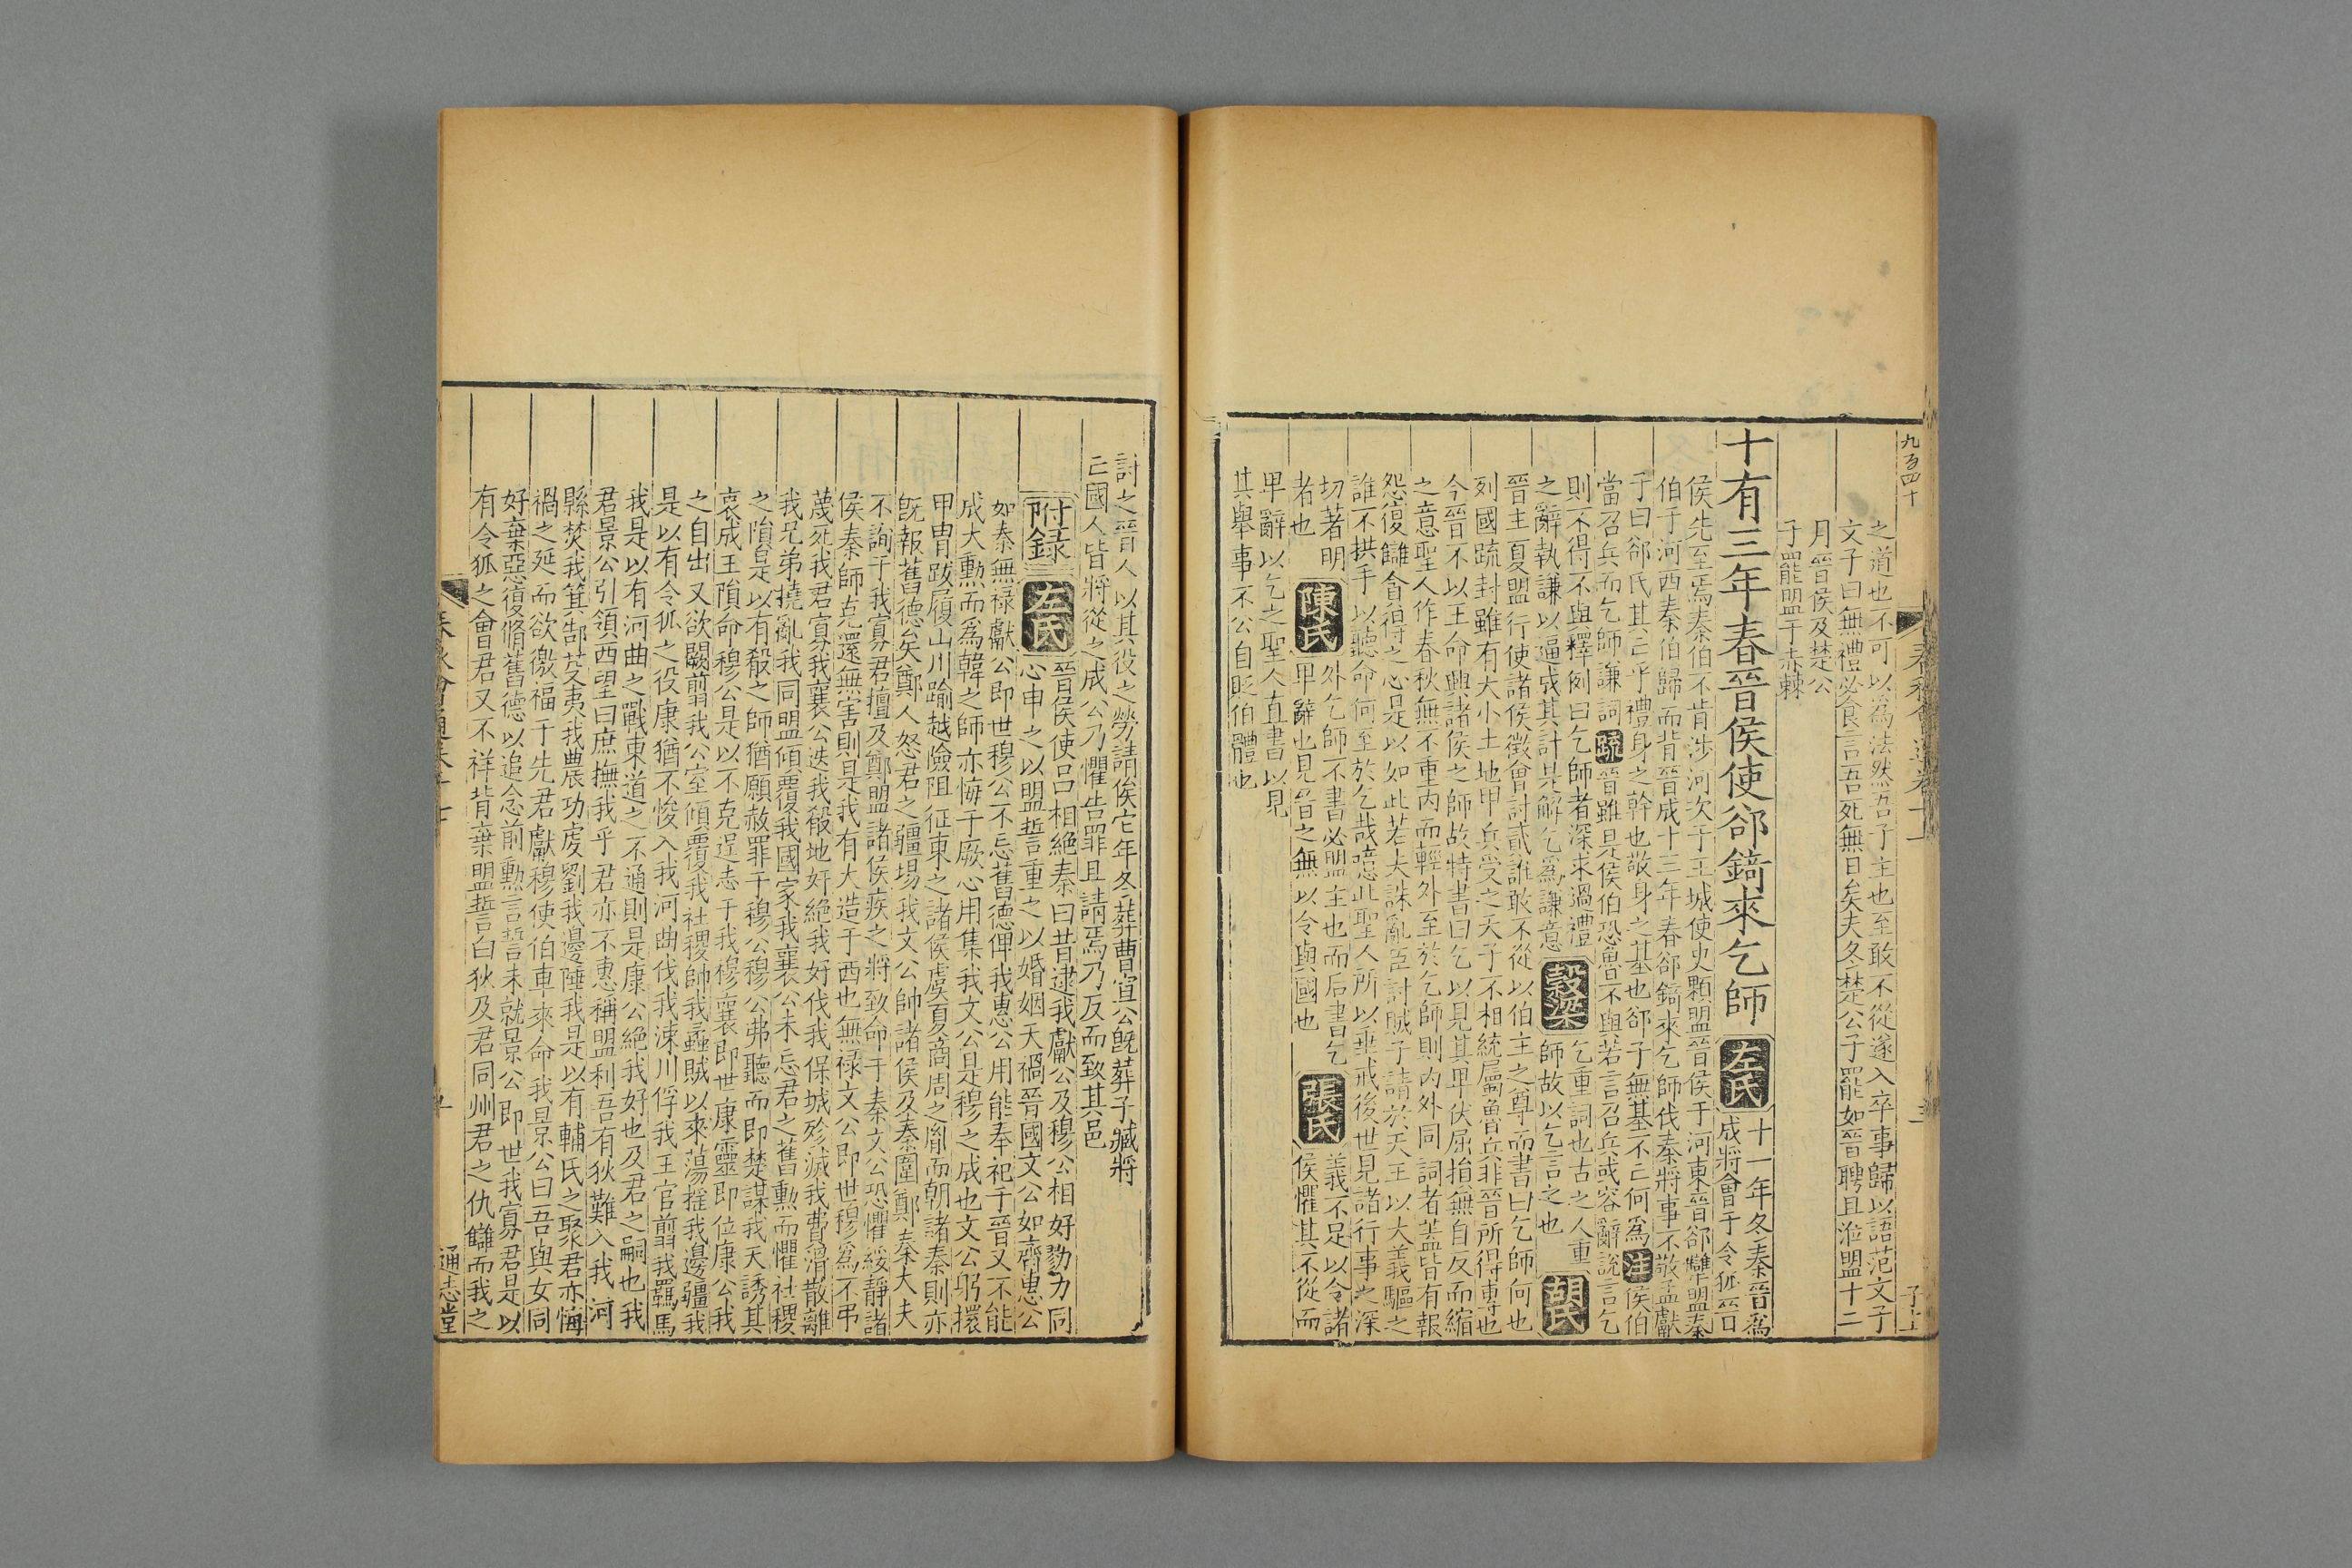 九百四十
之道也不可以為法然吾子主也至敢不從遂入卒事歸以語范文子
文子曰無禮必食言吾死無日矣夫冬楚公子罷如晉聘且涖盟十二
月晉侯及楚公
子罷盟于赤棘
十有三年春晉侯使郤錡來乞師
左氏
十一年冬秦晉為
成將會于令狐晉
侯先至焉秦伯不肯涉河次于王城使史顆盟晉侯于河東晉郤犫盟秦
伯于河西秦伯歸而背晉成十三年春郤錡來乞師伐秦將事不敬孟獻
子曰郤氏其亡乎禮身之幹也敬身之基也郤子無基不亡何為注侯伯
當召兵而乞師謙詞疏晉雖是侯伯恐魯不與若言召兵或容辭說言乞
則不得不與釋例曰乞師者深求過禮
之辭執謙以逼成其計是解乞為謙意
穀梁
乞重詞也古之人重
師故以乞言之也
胡氏
晉主夏盟行使諸侯徵會討貳誰敢不從以伯主之尊而書曰乞師何也
列國疏封雖有大小土地甲兵受之天子不相統屬魯兵非晉所得專也
今晉不以王命興諸侯之師故特書曰乞以見其卑伏屈損無自反而縮
之意聖人作春秋無不重內而輕外至於乞師則內外同詞者蓋皆有報
怨復讎會得之心是以如此若夫誅亂臣討賊子請於天王以大義驅之
誰不拱手以聽命何至於乞哉噫此聖人所以垂戒後世見諸行事之深
切著明
者也
陳氏
外乞師不書必盟主也而后書乞
卑辭也見晉之無以令與國也
張氏
義不足以令諸
侯懼其不從而
卑辭以乞之聖人直書以見
其舉事不公自貶伯體也
討之晉人以其役之勞請俟它年冬葬曹宣公既葬子臧將
亡國人皆將從之成公乃懼告罪且請焉乃反而致其邑
附錄
左氏
晉侯使呂相絕秦曰昔逮我獻公及穆公相好勠力同
心申之以盟誓重之以婚姻天禍晉國文公如齊惠公
如秦無祿獻公即世穆公不忘舊德俾我惠公用能奉祀于晉又不能
成大勳而為韓之師亦悔于厥心用集我文公是穆之成也文公躬擐
甲冑跋履山川踰越險阻征東之諸侯虞夏商周之胤而朝諸秦則亦
既報舊德矣鄭人怒君之疆埸我文公帥諸侯及秦圍鄭秦大夫
不詢于我寡君擅及鄭盟諸侯疾之將致命于秦文公恐懼綏靜諸
侯秦師克還無害則是我有大造于西也無祿文公即世穆為不弔
蔑死我君寡我襄公迭我殽地奸絕我好伐我保城殄滅我費滑散離
我兄弟撓亂我同盟傾覆我國家我襄公未忘君之舊勳而懼社稷
之隕是以有殽之師猶願赦罪于穆公穆公弗聽而即楚謀我天誘其
衷成王隕命穆公是以不克逞志于我穆襄即世康靈即位康公我
之自出又欲闕翦我公室傾覆我社稷帥我蟊賊以來蕩搖我邊疆我
是以有令狐之役康猶不悛入我河曲伐我涑川俘我王官翦我羈馬
我是以有河曲之戰東道之不通則是康公絕我好也及君之嗣也我
君景公引領西望曰庶撫我乎君亦不惠稱盟利吾有狄難入我河
縣焚我箕郜芟夷我農功虔劉我邊陲我是以有輔氏之聚君亦悔
禍之延而欲徼福于先君獻穆使伯車來命我景公曰吾與女同
好棄惡復脩舊德以追念前勳言誓未就景公即世我寡君是以
有令狐之會君又不祥背棄盟誓白狄及君同州君之仇讎而我之
通志堂